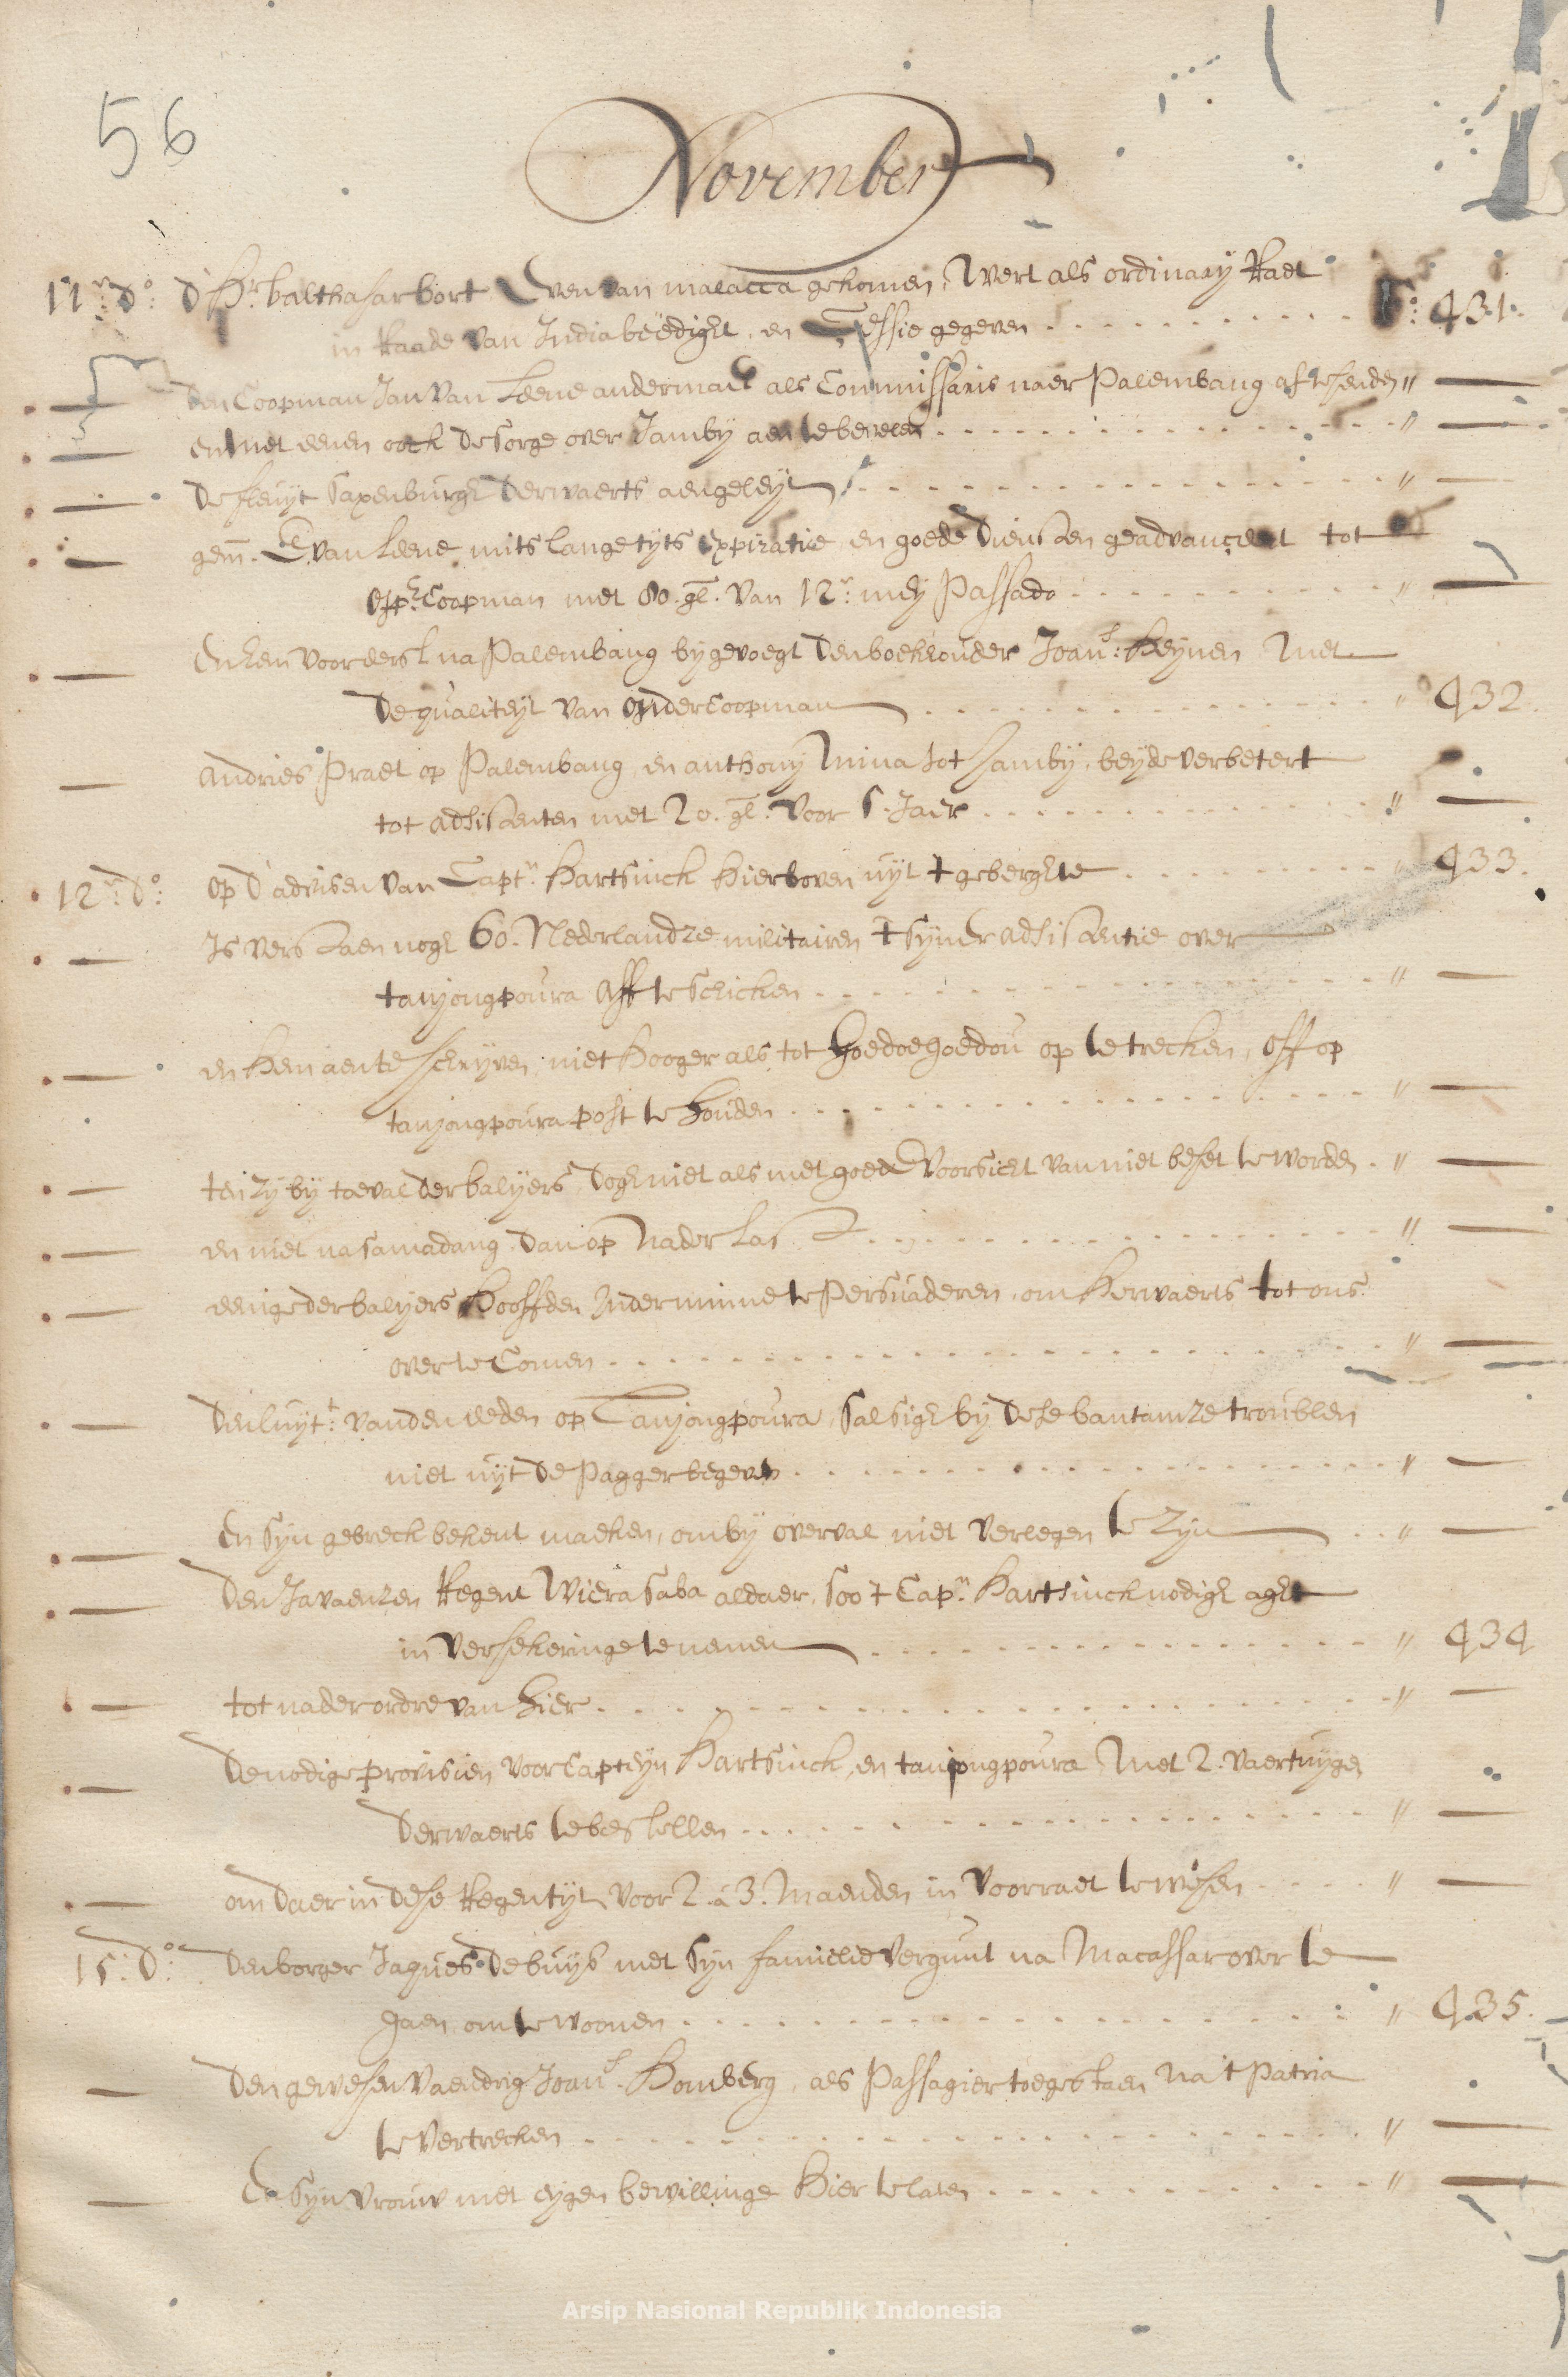 56
November
11.en do: d'Hr. balthasar bort Even van malacca gekomen, Wert als ordinaarij Raet
in Raade van India beëdigt, en Sessie gegeven . . . . fo: 431.
— den Coopman Jan van Leene andermael als Commissaris naer Palembang af te senden " —
— en met eenen oock de sorge over Jamby aen te bevelen . . . . " —
— de fluyt Saxenburgh derwaerts aengeleyt . . . . " —
— gem. Sr. van Leene mits lange tyts expiratie, en goede diensten geadvanceert tot
opp.r Coopman met 80. gl. van 12.e mey Passado . . . . " —
— En ten voorderst na Palembang bygevoegt den boekhouder Joan.s Heynen Met
de qualiteyt van onder Coopman . . . . " 432.
— Andries Praet op Palembang, en anthony Mina tot Jamby, beyde verbetert
tot adsistenten met 20. gl. voor 5. Jaer . . . . " —
12.en do: op d'advisen van Capt.n Hartsinck hierboven uyt t gebergte . . . . " 433.
— Is verstaen nogh 60. Nederlandze militairen t synder adsistentie over
tanjongpoura aff te schicken . . . . " —
— en hem aen te schryven, niet hooger als tot goedoegoedou op te trecken, off op
tanjongpoura post te houden . . . . " —
— ten zy by toeval der balyers, dogh niet als met goede Voorsicht van niet beset te worden . " —
— en niet na samadang, dan op Nader last . . . . " —
— eenige der balyers Hooffden Inder minne te Persuaderen, om herwaerts tot ons
over te Comen . . . . " —
— den luyt.t van den eeden op Tanjongpoura, sal sigh by dese bantamze troublen
niet uyt de Pagger begeven . . . . " —
— En syn gebreck bekent maeken, om by overval niet verlegen te zyn . . " —
— den Javaenzen Regent Wiera saba aldaer, soo t Cap.n Hartsinck nodigh aght
in versekeringe te nemen . . . . " 434
— tot nader ordre van hier . . . . " —
— de nodige provisien voor Capteyn Hartsinck, en tanjongpoura Met 2. vaertuygen
derwaerts te bestellen . . . . " —
— om daer in dese Regentyt voor 2. a 3. Maenden in voorraet te wesen . . . . " —
15. do: den borger Jaques de buys met syn familie vergunt na Macassar over te
gaen, om te woonen . . . . " 435.
— den gewesen Vaendrig Joan.s Homberg, als Passagier toegestaen na 't Patria
te vertrecken . . . . " —
— En syn vrouw met eygen bewillinge hier te laten . . . . " —
Arsip Nasional Republik Indonesia